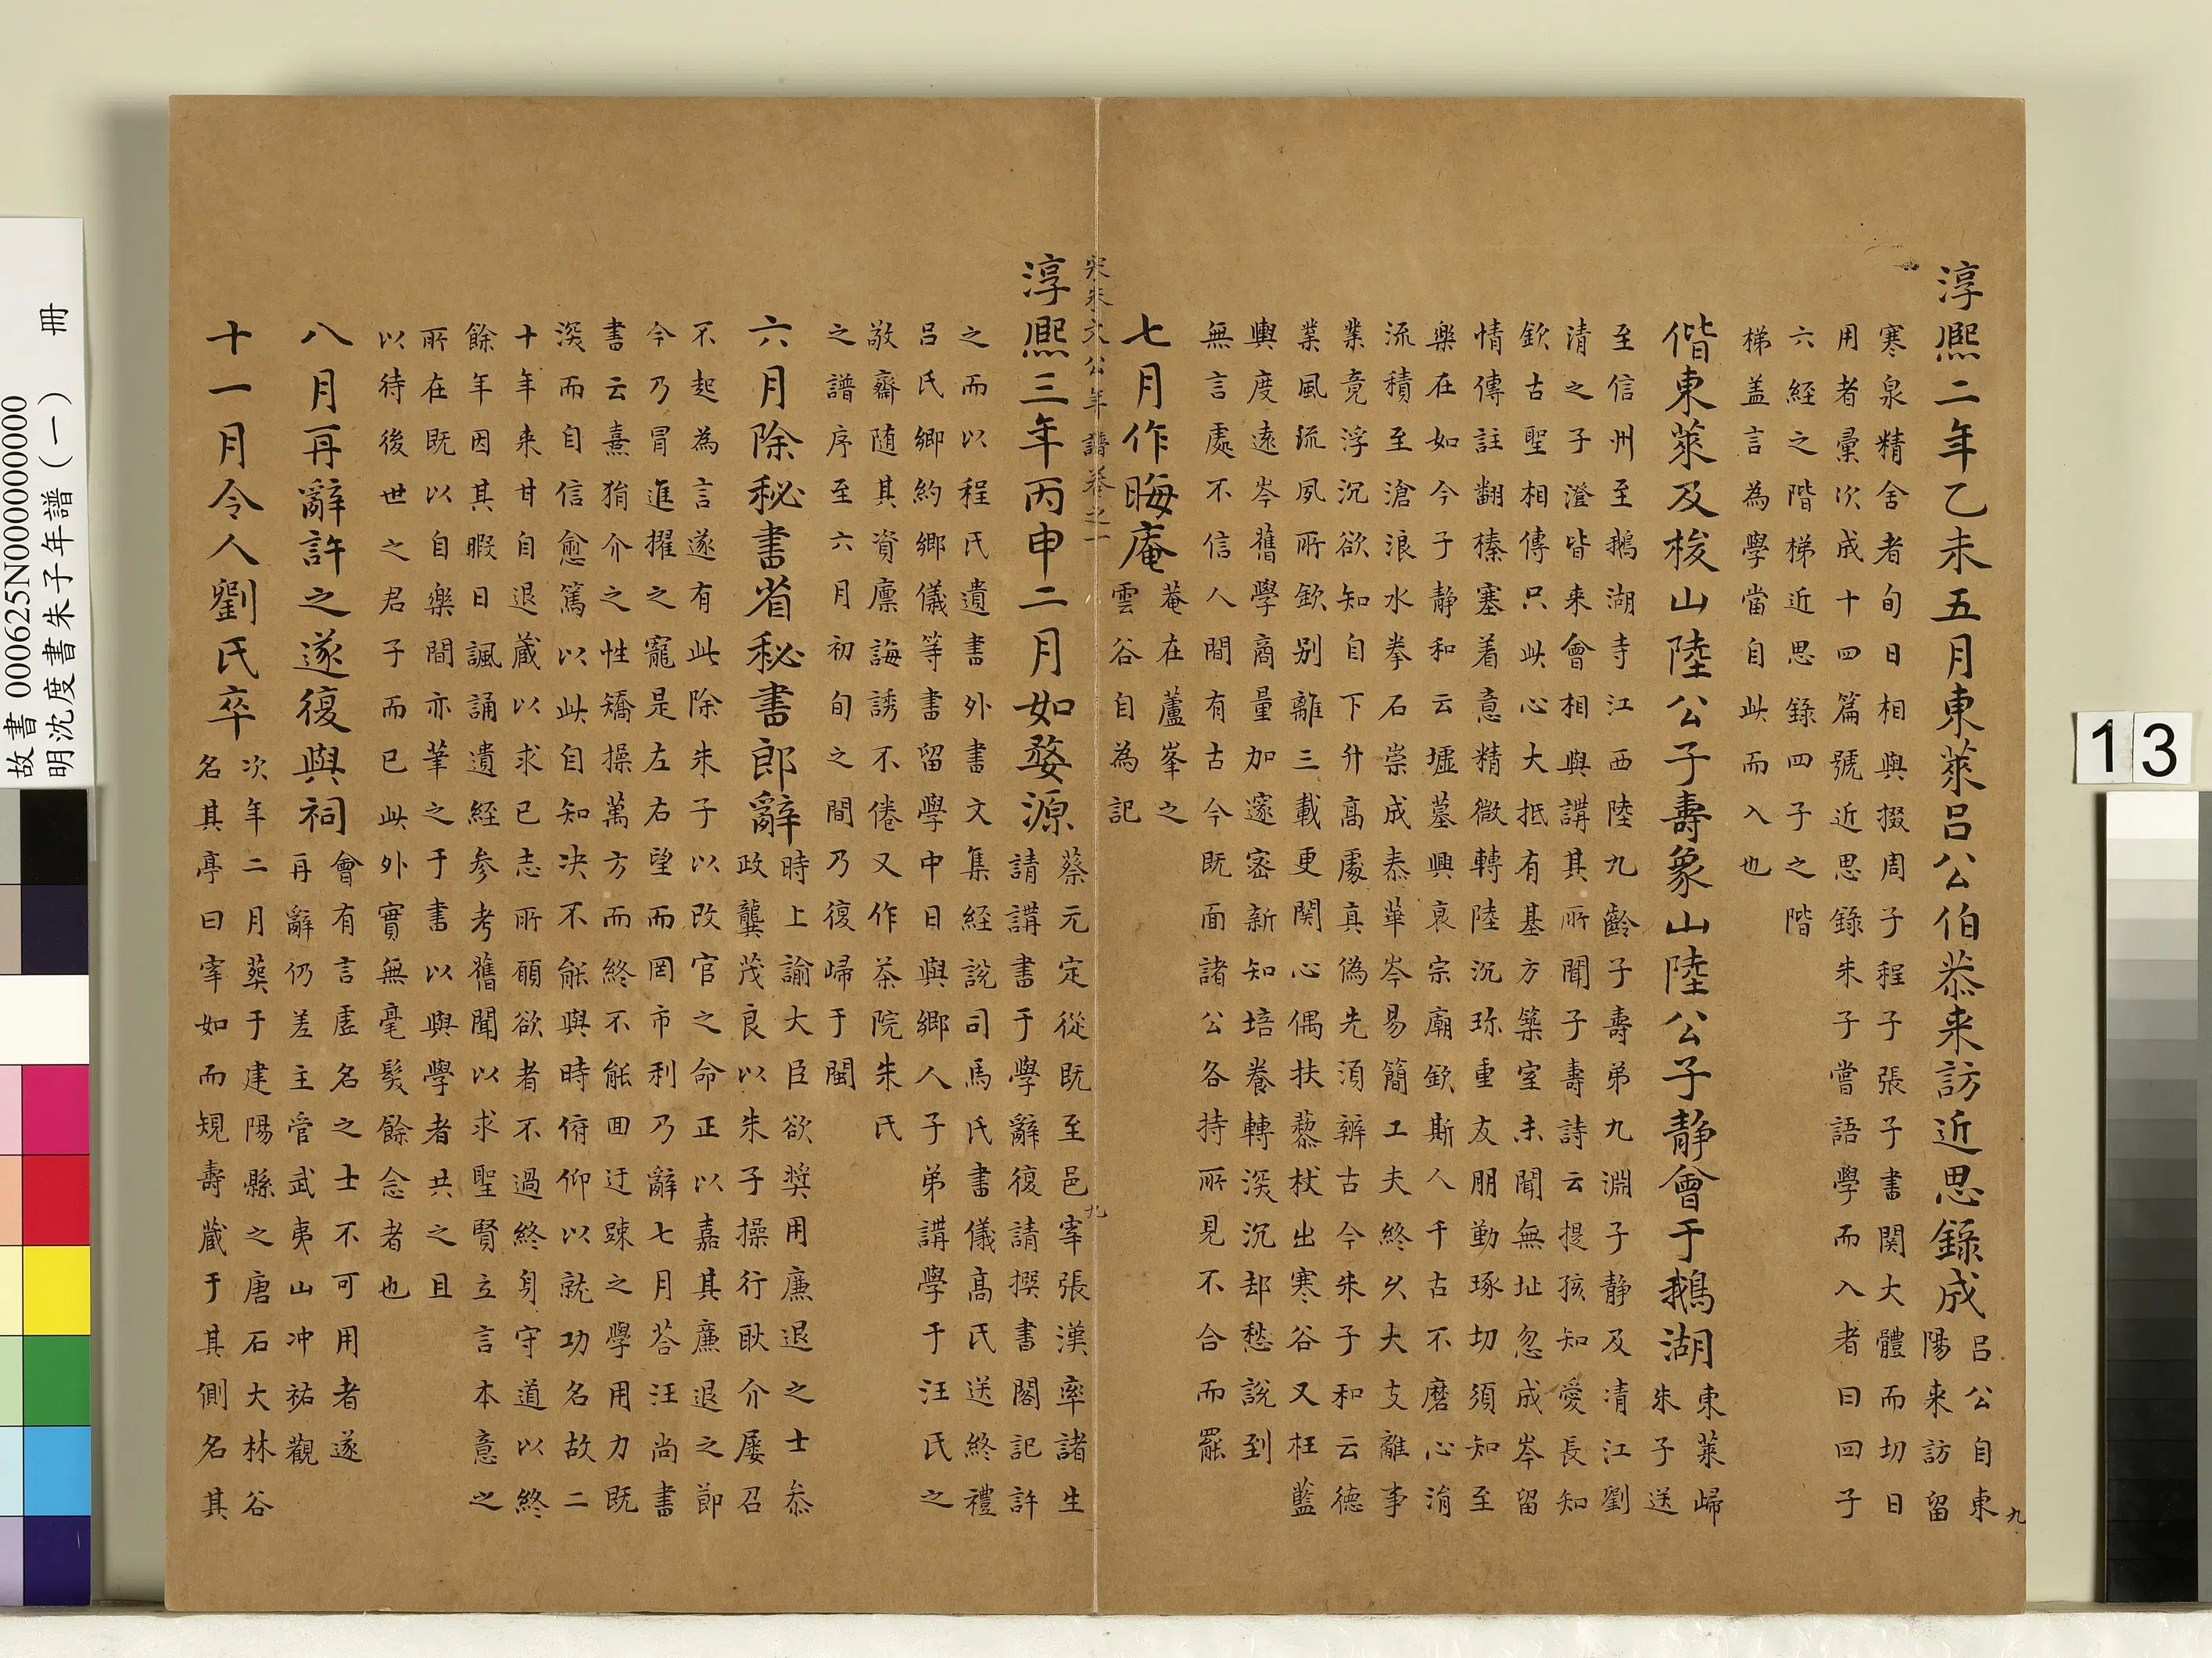 淳熈二年乙未五月東萊呂公伯恭来訪近思錄成
呂公自東
陽来訪留
寒泉精舍者旬日相與掇周子程子張子書関大體而切日
用者彙次成十四篇號近思錄朱子嘗語學而入者曰四子
六経之階梯近思錄四子之階
梯盖言為學當自此而入也
偕東萊及梭山陸公子壽象山陸公子静會于鵝湖
東萊歸
朱子送
至信州至鵝湖寺江西陸九齡子壽弟九淵子静及清江劉
清之子澄皆来會相與講其所聞子壽詩云提孩知愛長知
欽古聖相傳只此心大抵有基方築室未聞無址忽成岑留
情傳註翻榛塞着意精微轉陸沉珎重友朋勤琢切須知至
樂在如今子静和云墟墓興哀宗廟欽斯人千古不磨心涓
流積至滄浪水拳石崇成泰華岑易簡工夫終乆大支離事
業竟浮沉欲知自下升髙處真偽先須辧古今朱子和云德
業風流夙所欽别離三載更関心偶扶藜杖出寒谷又枉藍
輿度遠岑舊學商量加邃宻新知培養轉深沉却愁說到
無言處不信人間有古今既面諸公各持所見不合而罷
七月作晦庵
菴在蘆峯之
雲谷自為記
宋朱文公年譜卷之一
九
淳熈三年丙申二月如婺源
蔡元定從既至邑宰張漢率諸生
請講書于學辭復請撰書閣記許
之而以程氏遺書外書文集経說司馬氏書儀髙氏送終禮
呂氏鄉約鄉儀等書留學中日與鄉人子弟講學于汪氏之
敬齋随其資廪誨誘不倦又作茶院朱氏
之譜序至六月初旬之間乃復歸于閩
六月除秘書省秘書郎辭
時上諭大臣欲奨用廉退之士叅
政龔茂良以朱子操行耿介屢召
不起為言遂有此除朱子以改官之命正以嘉其廉退之節
今乃冒進擢之寵是左右望而罔市利乃辭七月荅汪尚書
書云熹狷介之性矯操萬方而終不能囬迂踈之學用力既
深而自信愈篤以此自知决不能與時俯仰以就功名故二
十年来甘自退藏以求已志所願欲者不過終身守道以終
餘年因其暇日諷誦遺経参考舊聞以求聖賢立言本意之
所在既以自樂間亦筆之于書以與學者共之且
以待後世之君子而已此外實無毫髮餘念者也
八月再辭許之遂復與祠
會有言虛名之士不可用者遂
再辭仍差主管武夷山冲祐觀
十一月令人劉氏卒
次年二月葬于建陽縣之唐石大林谷
名其亭曰宰如而規壽藏于其側名其
九
故書 000625N000000000
明沈度書朱子年譜(一) 冊
13